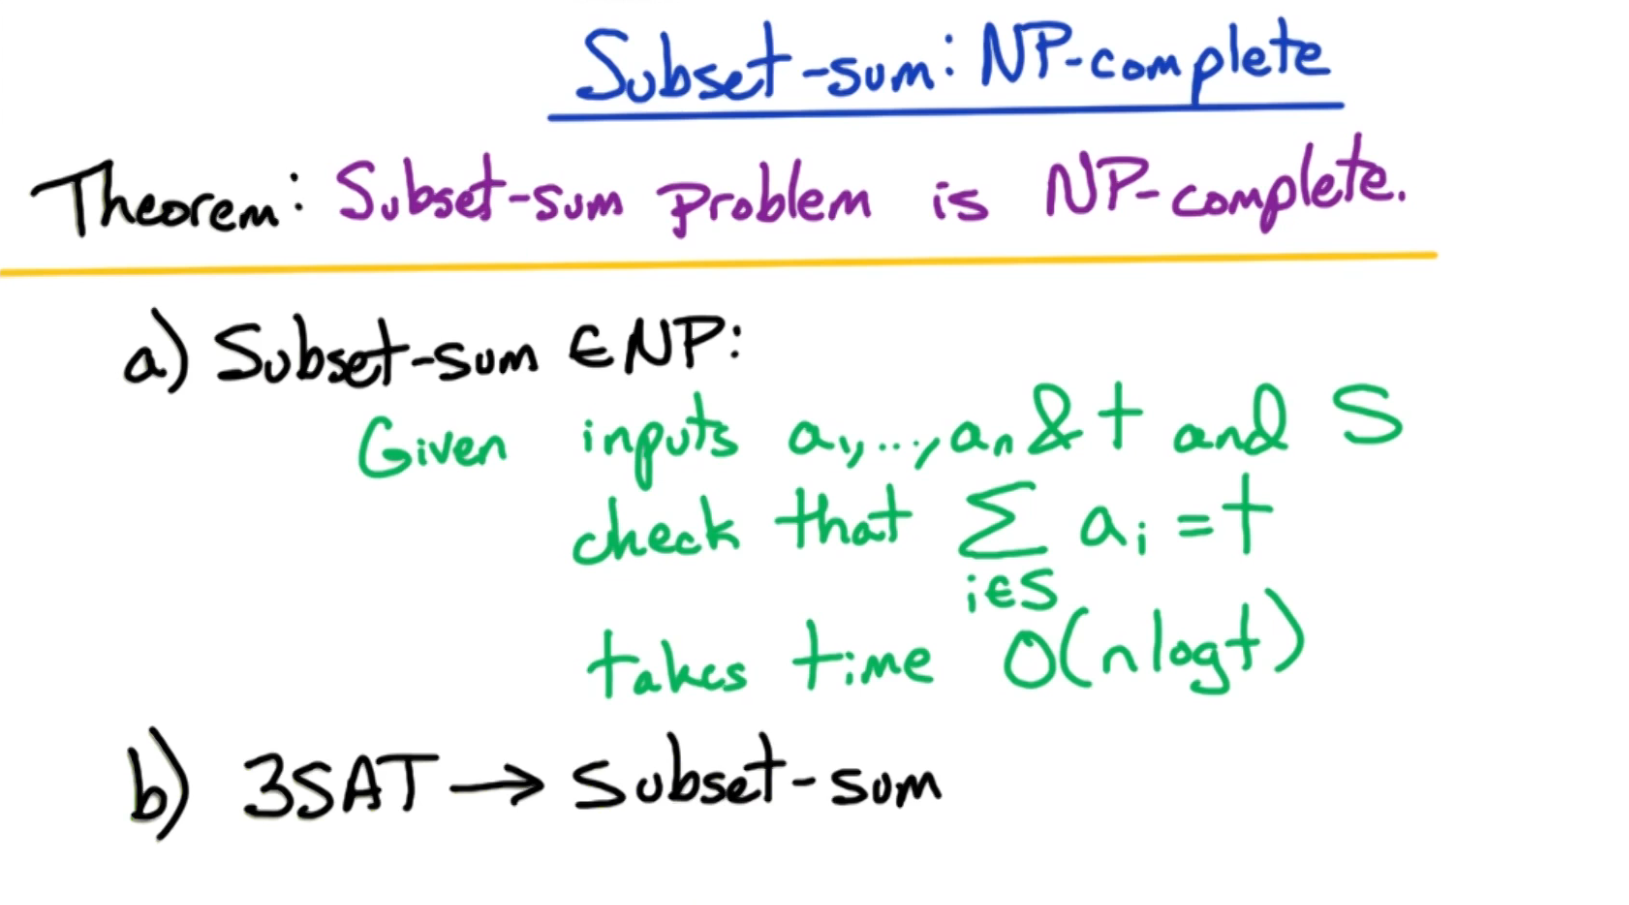 Subset-sum: NP-complete
Theorem: Subset-sum problem is NP-complete.
a) Subset-sum ∈ NP:
Given inputs a₁,...,aₙ & t and S
check that ∑ aᵢ = t
i∈S
takes time O(n log t)
b) 3SAT → Subset-sum